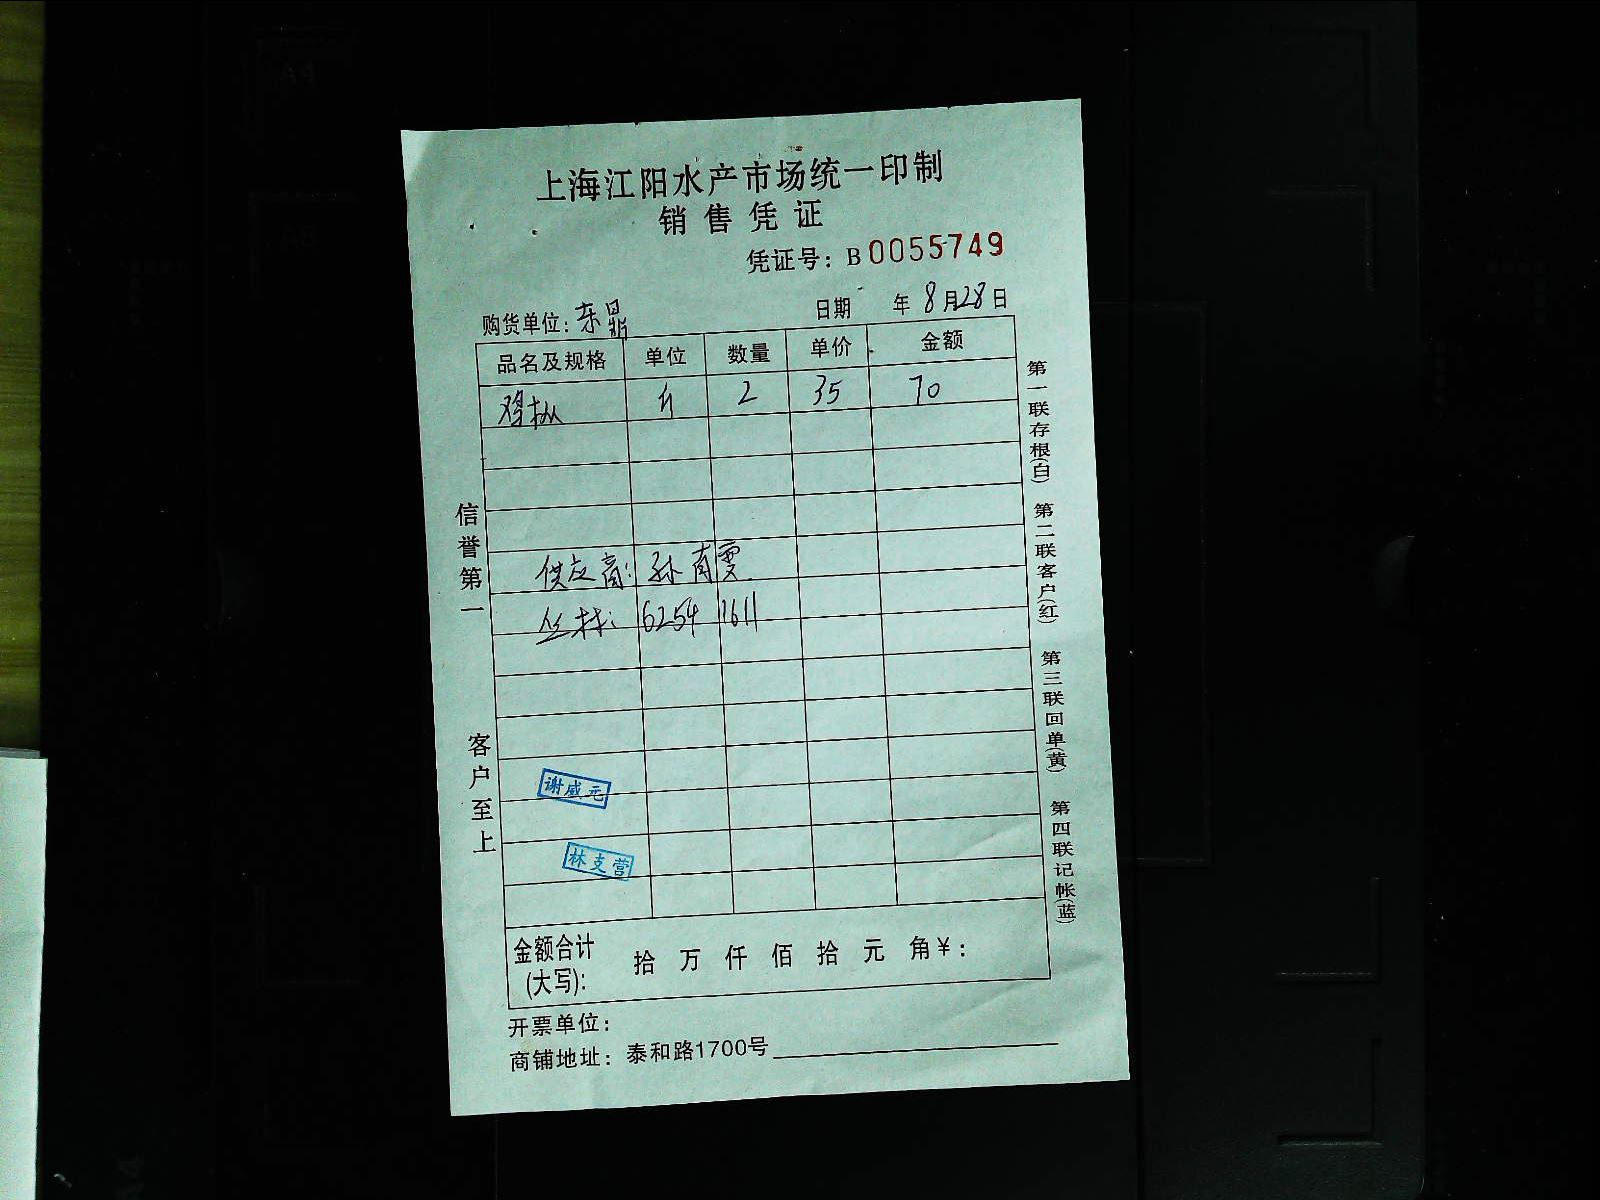 上海江阳水产市场统一印制
销售凭证
凭证号：B0055749
购货单位：东鼎 日期 年8月28日
品名及规格 单位 数量 单价 金额
鸡枞 斤 2 35 70
供应商：孙育雯
丝林：6254 1611
谢威元
林支营
金额合计(大写)： 拾 万 仟 佰 拾 元 角￥：
开票单位：
商铺地址：泰和路1700号
信誉第一
客户至上
第一联存根(白)
第二联客户(红)
第三联回单(黄)
第四联记帐(蓝)